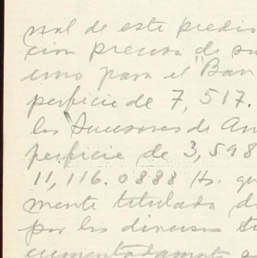 nal de este predio
cion precisa de su
uno para el "Ban
perficie de 7,517.
los Sucesores de An
perficie de 3,598
11,116.0888 Hs. que
mente titulada de
por los diversos tí
cumentadamente s